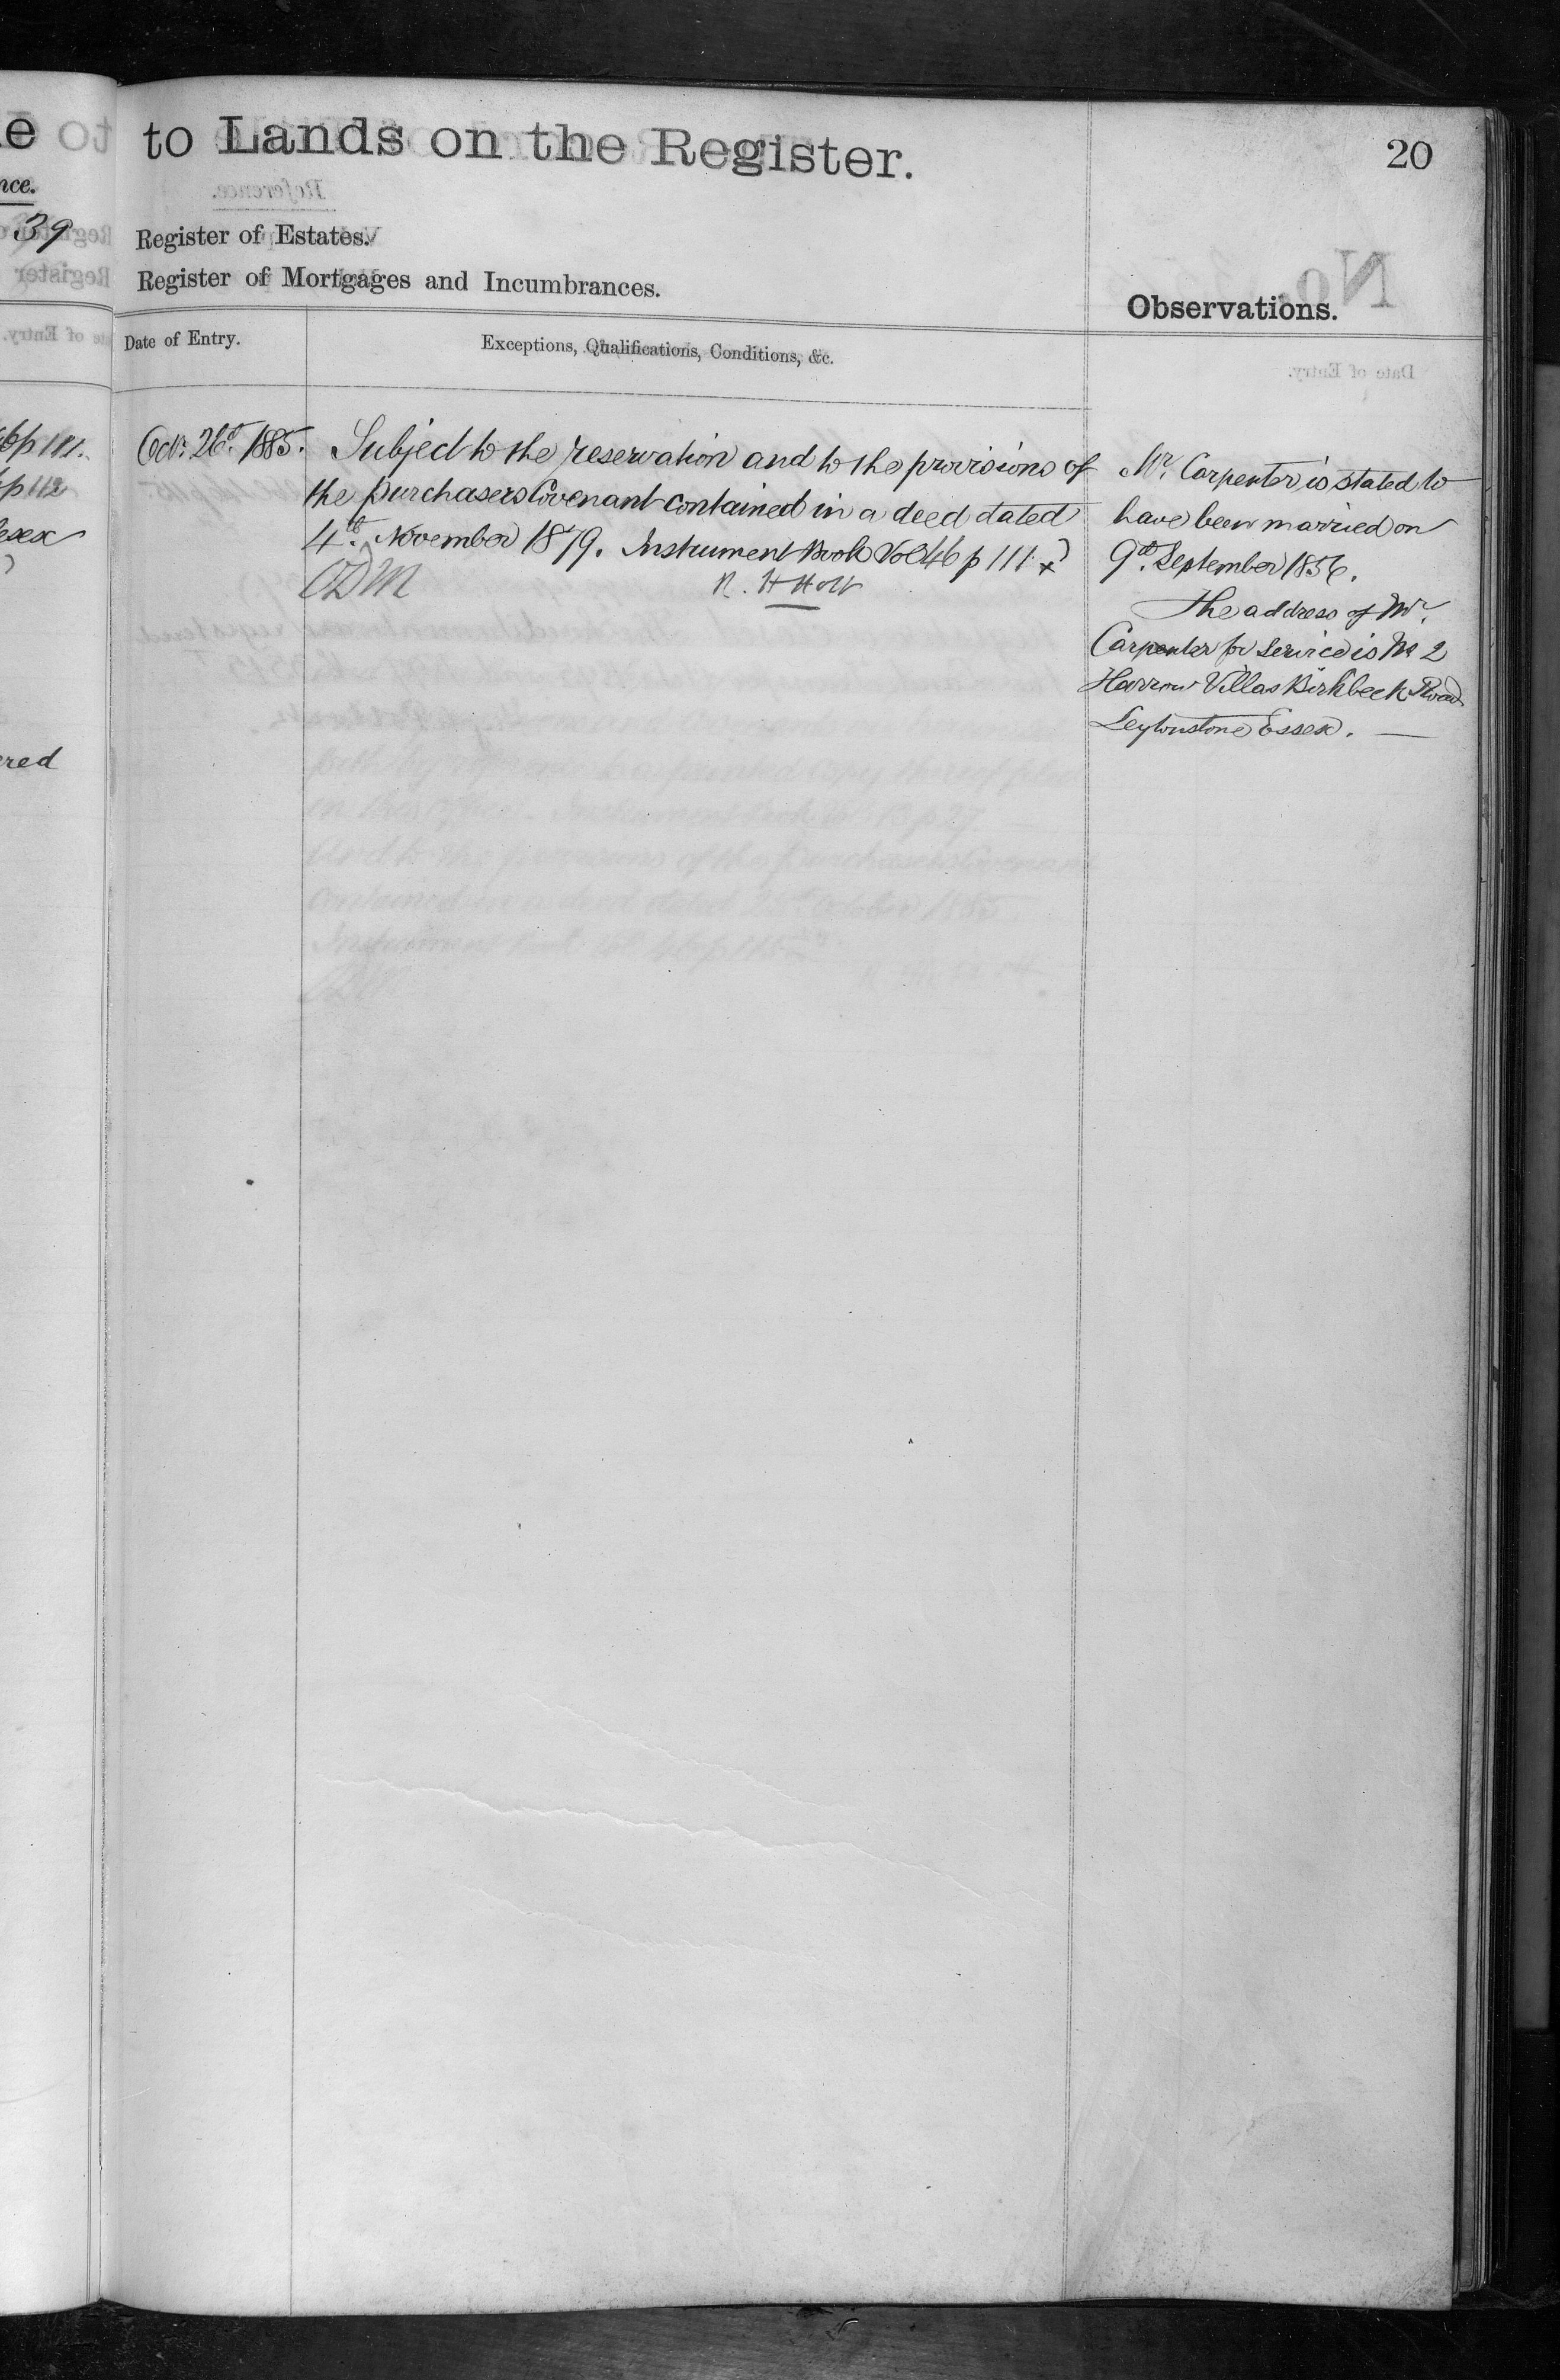 to Lands on the Register.
20
Register of Estates.
Register of Mortgages and Incumbrances.
Observations.
Date of Entry.
Exceptions, Qualifications, Conditions, &c.
Octr. 26th. 1885.
Subject to the reservation and to the provisions of
the purchasers Covenant contained in a deed dated
4th. November 1879. Instrument Book Vol 46 p 111.
R. H Holt
Mr. Carpenter is stated to
have been married on
9th. September 1856.
The address of Mr.
Carpenter for Service is No 2
Harrow Villas Birkbeck Road
Leytonstone Essex.
nce.
39
p 111.
p 112
ssex
ered